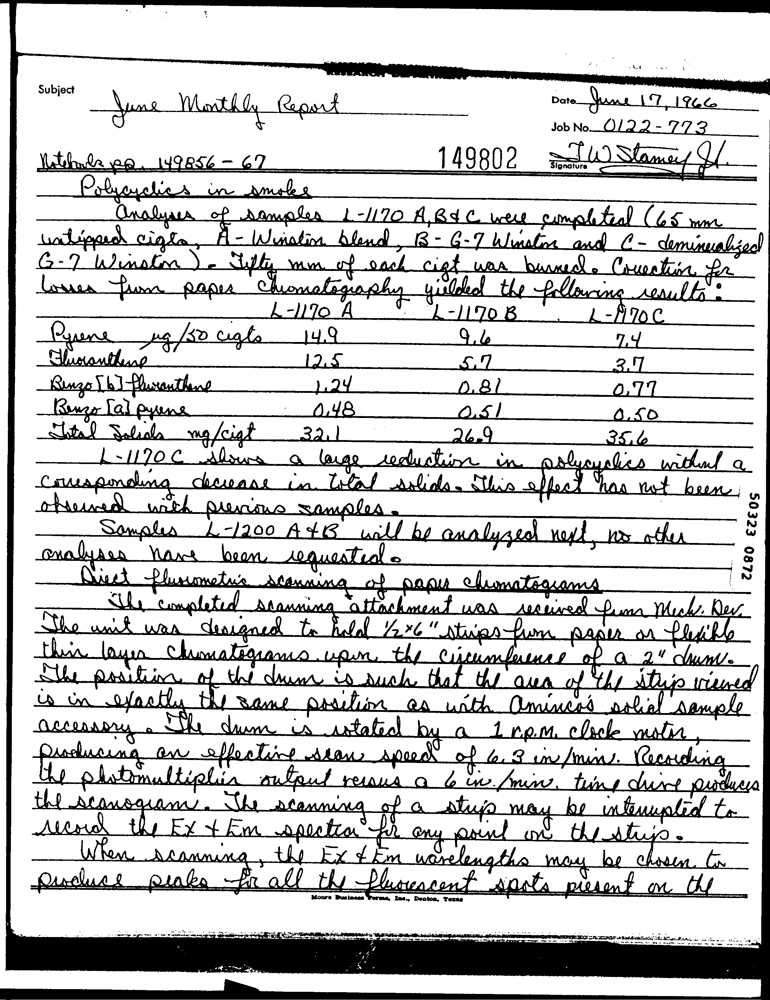 RESEARCH DEPARTMENT
Subject June Monthly Report
Date June 17, 1966
Job No. 0122-773
Notebook pp. 149856 - 67
149802
Signature J W Stamey Jr.
Polycyclics in smoke
Analyses of samples L-1170 A, B & C were completed (65 mm
untipped cigts, A - Winston blend, B - G-7 Winston and C - demineralized
G-7 Winston). Fifty mm of each cigt was burned. Correction for
losses from paper chromatography yielded the following results:
L-1170 A L-1170 B L-1170 C
Pyrene µg/50 cigts 14.9 9.6 7.4
Fluoranthene 12.5 5.7 3.7
Benzo [b] fluoranthene 1.24 0.81 0.77
Benzo [a] pyrene 0.48 0.51 0.50
Total Solids mg/cigt 32.1 26.9 35.6
L-1170 C shows a large reduction in polycyclics without a
corresponding decrease in total solids. This effect has not been
observed with previous samples.
Samples L-1200 A & B will be analyzed next, no other
analyses have been requested.
Direct fluorometric scanning of paper chromatograms
The completed scanning attachment was received from Mech. Dev.
The unit was designed to hold 1/2 x 6" strips from paper or flexible
thin layer chromatograms upon the circumference of a 2" drum.
The position of the drum is such that the area of the strip viewed
is in exactly the same position as with Aminco's solid sample
accessory. The drum is rotated by a 1 r.p.m. clock motor,
producing an effective scan speed of 6.3 in/min. Recording
the photomultiplier output versus a 6 in./min. time drive produces
the scanogram. The scanning of a strip may be interrupted to
record the Ex & Em spectra for any point on the strip.
When scanning, the Ex & Em wavelengths may be chosen to
produce peaks for all the fluorescent spots present on the
Moore Business Forms, Inc., Denton, Texas
50323 0872